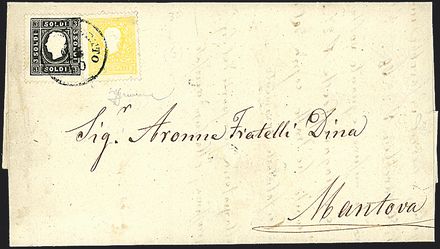 SOLDI
3 SOLDI
SOLDI 3
SOLDI
Sig.r Aronne Fratelli Dina
Mantova